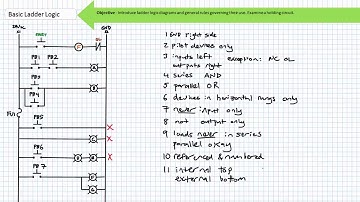 Basic Ladder Logic
Objective - Introduce ladder logic diagrams and general rules governing their use. Examine a holding circuit.
GND
PB1
PB2
PB3
PB4
PB5
PB6
PB7
X
X
X
1 GND right side
2 pilot devices only
3 inputs left exception: NC OL
outputs right
4 series AND
5 parallel OR
6 devices in horizontal rungs only
7 never input only
8 not output only
9 loads never in series
parallel okay
10 referenced & numbered
11 internal top
external bottom